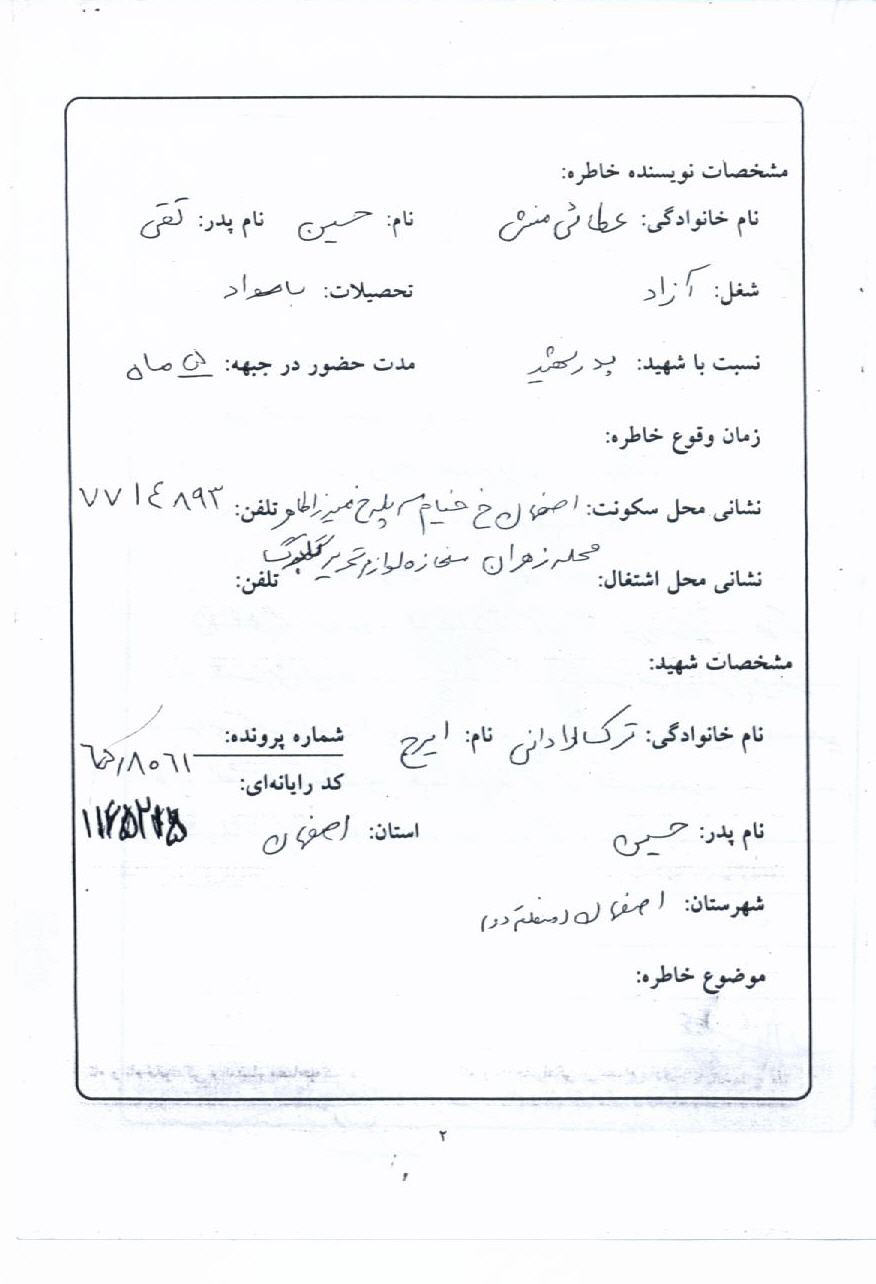 مشخصات نویسنده خاطره:
نام خانوادگی: عطائی منش نام: حسین نام پدر: تقی
شغل: آزاد تحصیلات: باسواد
نسبت با شهید: پدر شهید مدت حضور در جبهه: ماه
زمان وقوع خاطره:
نشانی محل سکونت: اصفهان خ خیام خ میرزا طاهر تلفن: ۷۷۱۴۸۹۳
محله زهران مغازه لوازم تحریر
نشانی محل اشتغال: تلفن:
مشخصات شهید:
نام خانوادگی: ترک لادانی نام: ایرج شماره پرونده:
۱۸۰۶۱
کد رایانه‌ای:
نام پدر: حسین استان: اصفهان
شهرستان: اصفهان (منطقه دو)
موضوع خاطره:
۲